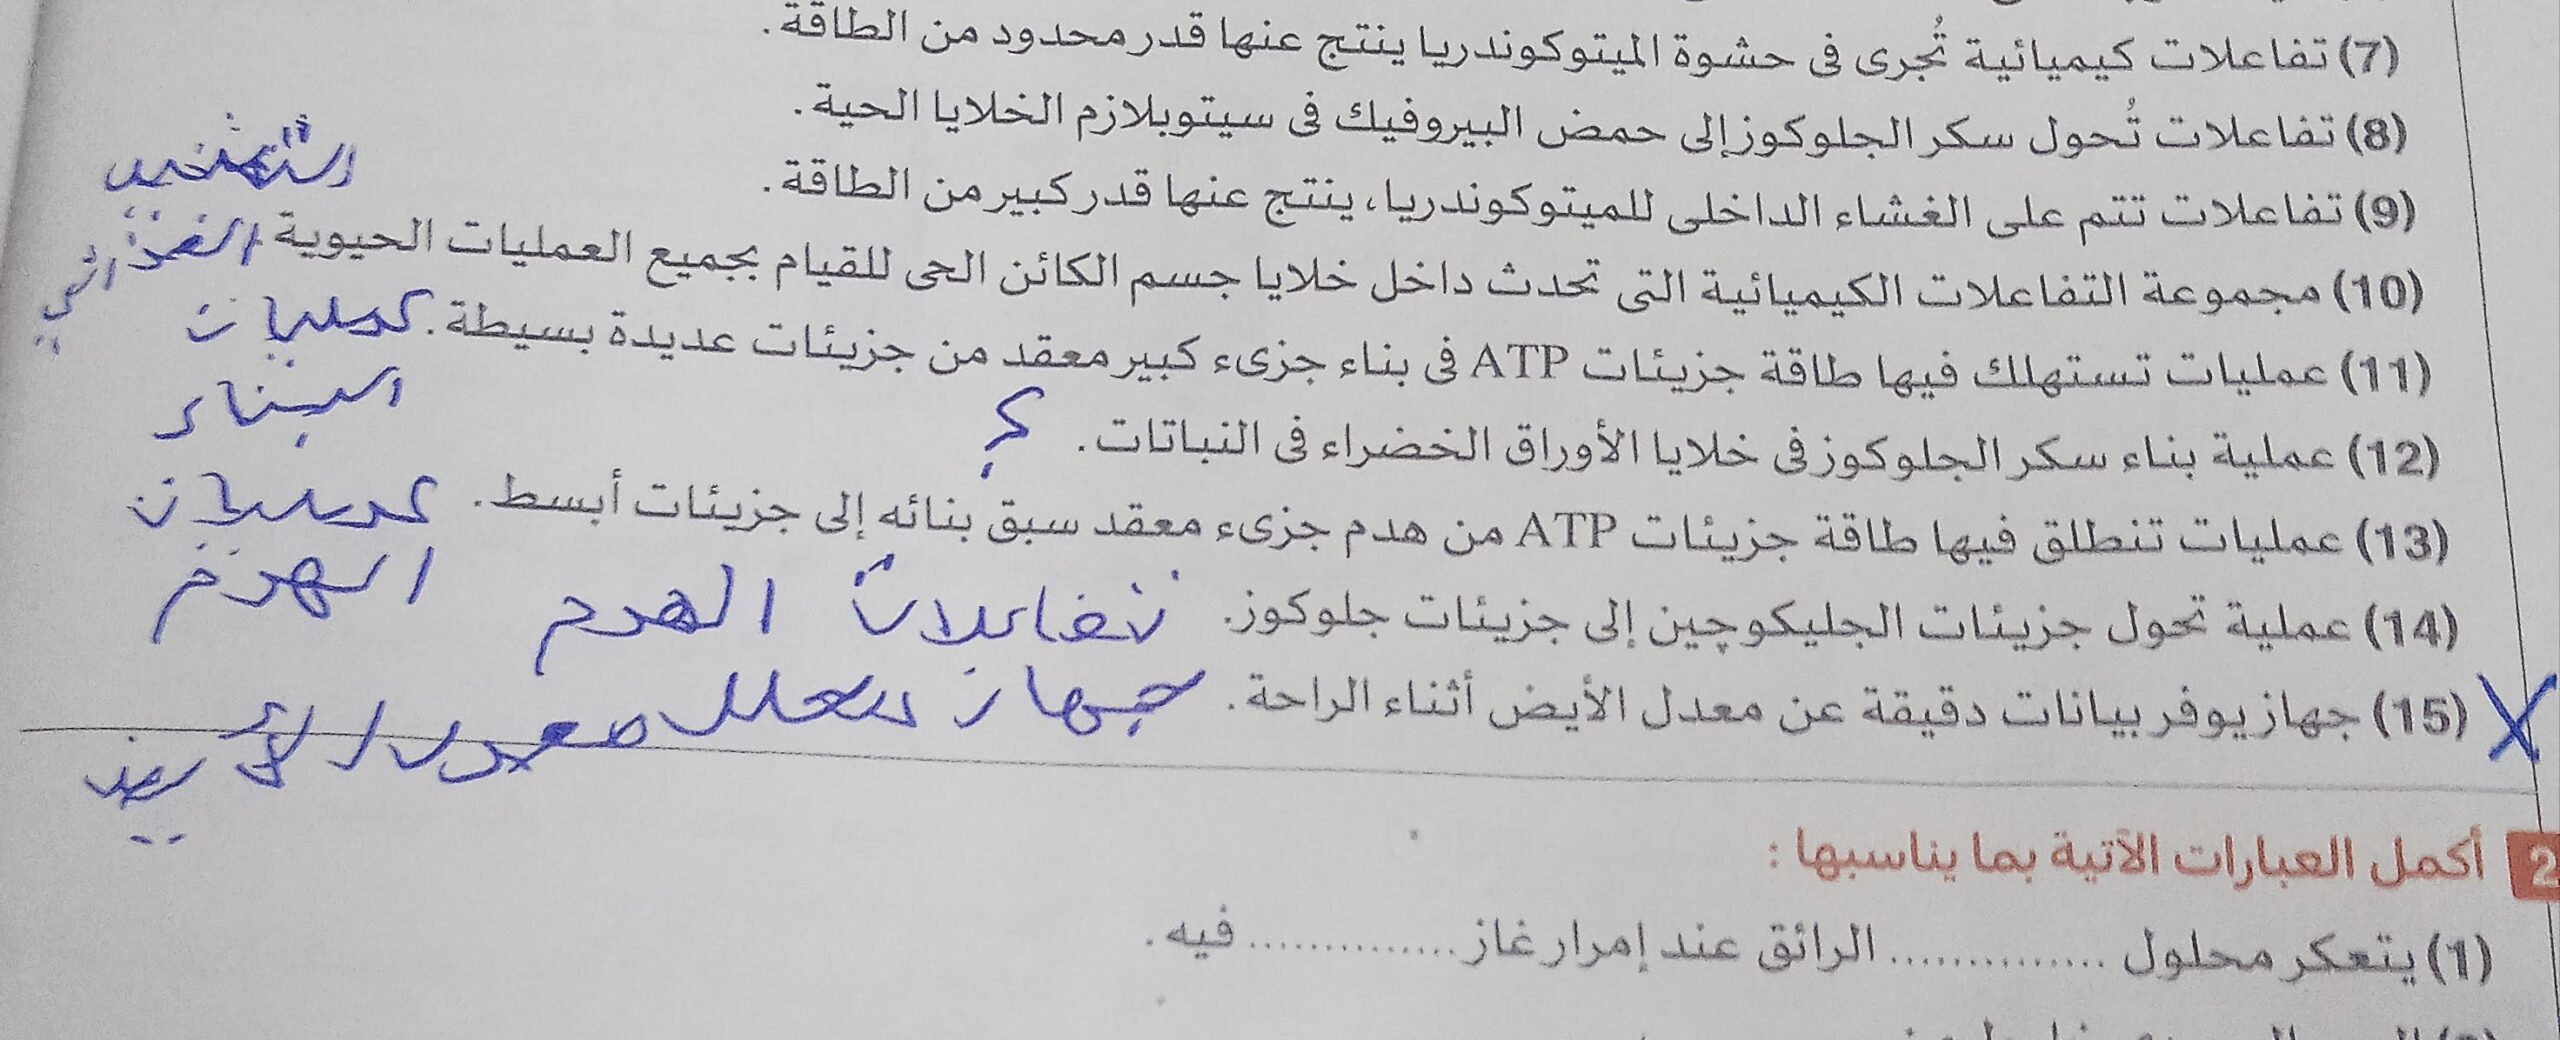 (7) تفاعلات كيميائية تُجرى فى حشوة الميتوكوندريا ينتج عنها قدر محدود من الطاقة.
(8) تفاعلات تُحول سكر الجلوكوز إلى حمض البيروفيك فى سيتوبلازم الخلايا الحية.
(9) تفاعلات تتم على الغشاء الداخلى للميتوكوندريا، ينتج عنها قدر كبير من الطاقة.
التمثيل
(10) مجموعة التفاعلات الكيميائية التى تحدث داخل خلايا جسم الكائن الحى للقيام بجميع العمليات الحيوية. الغذائي
(11) عمليات تستهلك فيها طاقة جزيئات ATP فى بناء جزىء كبير معقد من جزيئات عديدة بسيطة. عمليات
البناء
(12) عملية بناء سكر الجلوكوز فى خلايا الأوراق الخضراء فى النباتات. ؟
(13) عمليات تنطلق فيها طاقة جزيئات ATP من هدم جزىء معقد سبق بنائه إلى جزيئات أبسط. عمليات
الهدم
(14) عملية تحول جزيئات الجليكوچين إلى جزيئات جلوكوز. تفاعلات الهدم
(15) جهاز يوفر بيانات دقيقة عن معدل الأيض أثناء الراحة. جهاز معدل الأيض
2 أكمل العبارات الآتية بما يناسبها :
(1) يتعكر محلول .............. الرائق عند إمرار غاز .............. فيه.